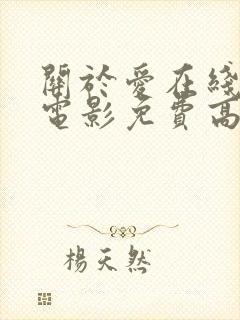 關於愛在綫
電影免費高
楊天然